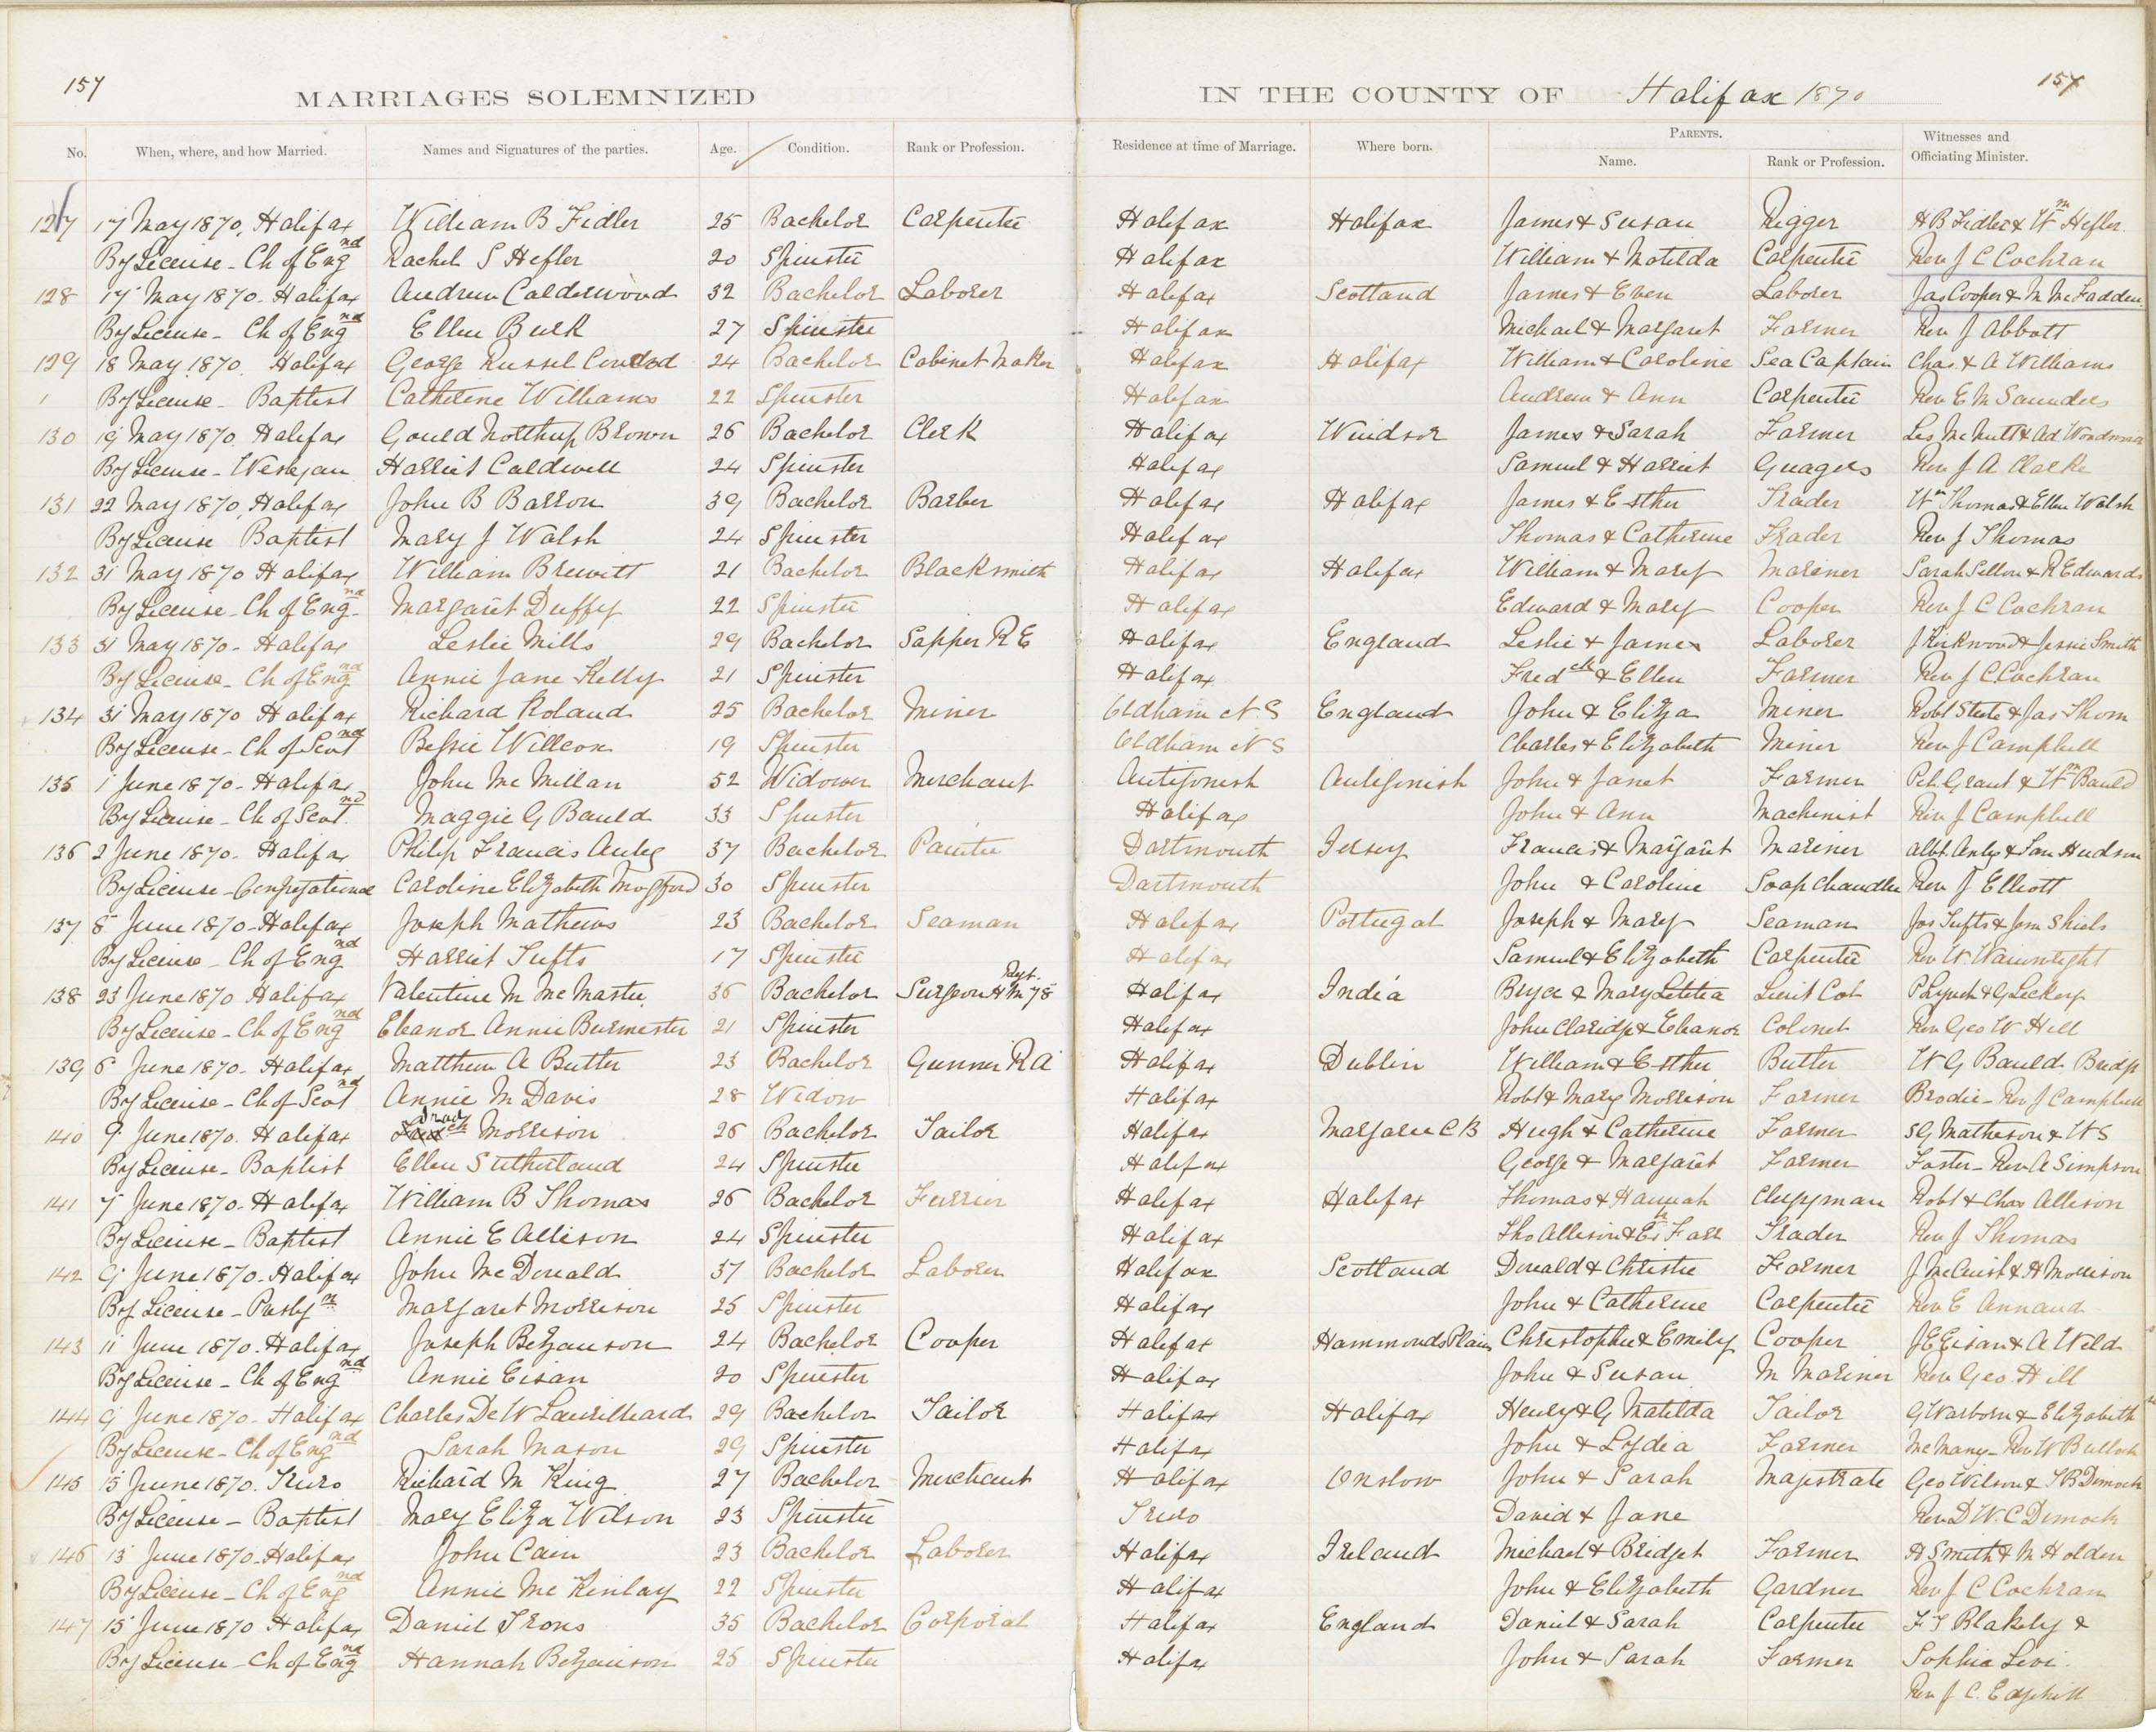 157
157
MARRIAGES SOLEMNIZED IN THE COUNTY OF Halifax 1870
No. When, where, and how Married. Names and Signatures of the parties. Age. Condition. Rank or Profession. Residence at time of Marriage. Where born. PARENTS. Name. Rank or Profession. Witnesses and Officiating Minister.
127 17 May 1870, Halifax William B Fidler 25 Bachelor Carpenter Halifax Halifax James & Susan Rigger H B Fidler & Wm Hefler
By License - Ch of Engnd Rachel S Hefler 20 Spinster Halifax William & Matilda Carpenter Rev J C Cochran
128 17 May 1870 - Halifax Andrew Calderwood 32 Bachelor Laborer Halifax Scotland James & Even Laborer Jas Cooper & M McFadden
By License - Ch of Engnd Ellen Burk 27 Spinster Halifax Michael & Margaret Farmer Rev J Abbott
129 18 May 1870. Halifax George Russel Conrod 24 Bachelor Cabinet Maker Halifax Halifax William & Caroline Sea Captain Chas. & A Williams
By License - Baptist Catherine Williams 22 Spinster Halifax Andrew & Ann Carpenter Rev E M Saunders
130 19 May 1870. Halifax Gould Northup Brown 26 Bachelor Clerk Halifax Windsor James & Sarah Farmer Les McNutt & Ad
By License - Wesleyan Harriet Caldwell 24 Spinster Halifax Samuel & Harriet Guagers Rev J A Clarke
131 22 May 1870, Halifax John B Barron 39 Bachelor Barber Halifax Halifax James & Esther Trader Wm Thomas & Ellen Walsh
By License Baptist Mary J Walsh 24 Spinster Halifax Thomas & Catherine Trader Rev J Thomas
132 31 May 1870 Halifax William Brewitt 21 Bachelor Blacksmith Halifax Halifax William & Mary Mariner Sarah Sellon & R Edwards
By License - Ch of Engnd Margaret Duffy 22 Spinster Halifax Edward & Mary Cooper Rev J C Cochran
133 31 May 1870 - Halifax Leslie Mills 29 Bachelor Sapper R E Halifax England Leslie & James Laborer J Kirkwood & Jessie Smith
By License - Ch of Engnd Annie Jane Kelly 21 Spinster Halifax Fredck & Ellen Farmer Rev J C. Cochran
134 31 May 1870 Halifax Richard Roland 25 Bachelor Miner Oldham N S England John & Eliza Miner Robt Steele & Jas Thom
By License - Ch of Scotnd Bessie Willcox 19 Spinster Oldham N S Charles & Elizabeth Miner Rev J Campbell
135 1 June 1870 - Halifax John McMillan 52 Widower Merchant Antigonish Antigonish John & Janet Farmer Pet. Grant & Wm Bauld
By License - Ch of Scotnd Maggie G Bauld 33 Spinster Halifax John & Ann Machinist Rev J Campbell
136 2 June 1870 - Halifax Philip Francis Anley 37 Bachelor Painter Dartmouth Jersey Francis & Margaret Mariner Albt. Anley & Sam Hudson
By License - Congregational Caroline Elizabeth Mugford 30 Spinster Dartmouth John & Caroline Soap Chandler Rev J Elliott
137 8 June 1870 - Halifax Joseph Mathews 23 Bachelor Seaman Halifax Portugal Joseph & Mary Seaman Jos Tufts & Jem Shiels
By License - Ch of Engnd Harriet Tufts 17 Spinster Halifax Samuel & Elizabeth Carpenter Rev W Wainwright
138 23 June 1870 Halifax Valentine M McMaster 36 Bachelor Surgeon H M 78 Regt. Halifax India Bryce & Mary Letitia Lieut Col P Lynch & G Leckey
By License - Ch of Engnd Eleanor Annie Burmester 21 Spinster Halifax John Claridge & Eleanor Colonel Rev Geo W Hill
139 6 June 1870 - Halifax Matthew A Butler 23 Bachelor Gunner R A Halifax Dublin William & Esther Butler W G Bauld
By License - Ch of Scotnd Annie M Davis 28 Widow Halifax Robt & Mary Morrison Farmer Brodie - Rev J Campbell
140 9 June 1870. Halifax Morrison 26 Bachelor Tailor Halifax Margaree C B Hugh & Catherine Farmer S G Matheson & W S
By License - Baptist Ellen Sutherland 24 Spinster Halifax George & Margaret Farmer Foster - Rev A Simpson
141 7 June 1870 - Halifax William B Thomas 26 Bachelor Furrier Halifax Halifax Thomas & Hannah Clergyman Robt & Chas Allison
By License - Baptist Annie E Allison 24 Spinster Halifax Tho Allison & Farr Trader Rev J Thomas
142 9 June 1870 - Halifax John McDonald 37 Bachelor Laborer Halifax Scotland Donald & Christie Farmer J McCuish & H Morrison
By License - Presbyn Margaret Morrison 25 Spinster Halifax John & Catherine Carpenter Rev E Annand
143 11 June 1870. Halifax Joseph Bezanson 24 Bachelor Cooper Halifax Hammonds Plains Christopher & Emily Cooper J E Eisan & A Weld
By License - Ch of Engnd Annie Eisan 20 Spinster Halifax John & Susan M Mariner Rev Geo Hill
144 9 June 1870 - Halifax Charles De W Laurilliard 29 Bachelor Tailor Halifax Halifax Henry & G Matilda Tailor G Warborn & Elizabeth
By License - Ch of Engnd Sarah Mason 29 Spinster Halifax John & Lydia Farmer McMany - Rev W Bullock
145 15 June 1870. Truro Richard M King 27 Bachelor Merchant Halifax Onslow John & Sarah Magistrate Geo Wilson & T B Dimock
By License - Baptist Mary Eliza Wilson 23 Spinster Truro David & Jane Rev D W. C Dimock
146 13 June 1870 - Halifax John Cain 23 Bachelor Laborer Halifax Ireland Michael & Bridget Farmer H Smith & M Holden
By License - Ch of Engnd Annie McKinlay 22 Spinster Halifax John & Elizabeth Gardner Rev J C Cochran
147 15 June 1870 Halifax Daniel Irons 35 Bachelor Corporal Halifax England Daniel & Sarah Carpenter F T Blakely &
By License - Ch of Engnd Hannah Bezanson 25 Spinster Halifax John & Sarah Farmer Sophia Levi
Rev J C. Edghill